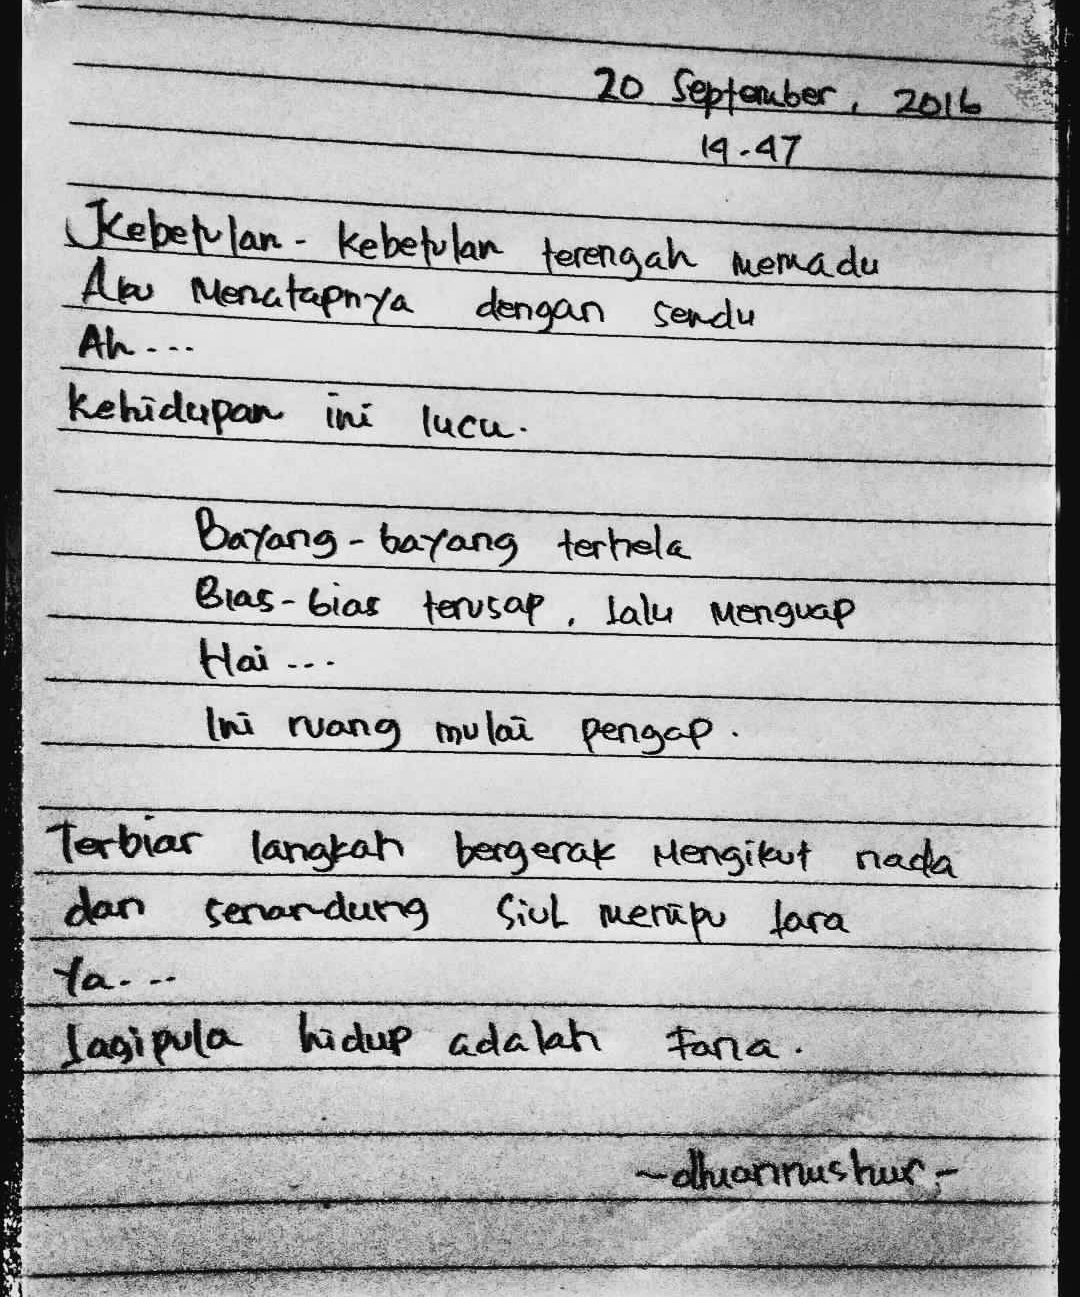 20 September, 2016
14.47
Kebetulan - kebetulan terengah memadu
Aku Menatapnya dengan sendu
Ah....
kehidupan ini lucu.
Bayang - bayang terhela
Bias - bias terusap, lalu menguap
Hai ...
Ini ruang mulai pengap.
Terbiar langkah bergerak Mengikut nada
dan senandung siul menipu lara
Ya....
lagipula hidup adalah Fana.